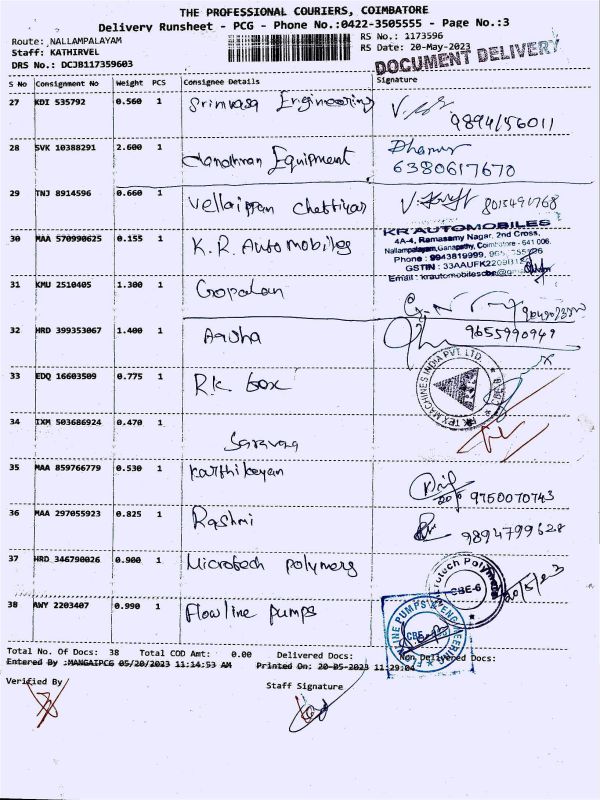 THE PROFESSIONAL COURIERS, COIMBATORE
Delivery Runsheet - PCG - Phone No.:0422-3505555 - Page No.:3
Route: NALLAMPALAYAM RS No.: 1173596
Staff: KATHIRVEL RS Date: 20-May-2023
DRS No.: DCJB117359603 DOCUMENT DELIVERY
S No Consignment No Weight PCS Consignee Details Signature
27 KDI 535792 0.560 1 Srinivasa Engineering
9894156011
28 SVK 10388291 2.600 1 Equipment
6380617670
29 TNJ 8914596 0.660 1 Vellaippan Chettiyar
30 MAA 570990625 0.155 1 K.R. Automobiles
KR AUTOMOBILES
4A-4, Ramasamy Nagar, 2nd Cross,
Nallampalayam, Ganapathy, Coimbatore - 641 006.
Phone : 9943819999,
GSTIN : 33AAUFK2209B1
Email : krautomobilescbe@
31 KMU 2510405 1.300 1 Gopalan
32 HRD 399353067 1.400 1
33 EDQ 16603509 0.775 1 R.K. Box
TEX MACHINES INDIA PVT. LTD.
34 IXM 503686924 0.470 1
35 MAA 859766779 0.530 1 Karthikeyan
9750070743
36 MAA 297055923 0.825 1 Rashmi
9894799628
37 HRD 346790026 0.900 1 Microtech polymers
CBE-6
20/5/23
38 AWY 2203407 0.990 1 Flowline pumps
FLOWLINE PUMPS & ENGINEERING
CBE
Total No. Of Docs: 38 Total COD Amt: 0.00 Delivered Docs: Non Delivered Docs:
Entered By :MANGAIPCG 05/20/2023 11:14:53 AM Printed On: 20-05-2023 11:29:04
Verified By Staff Signature